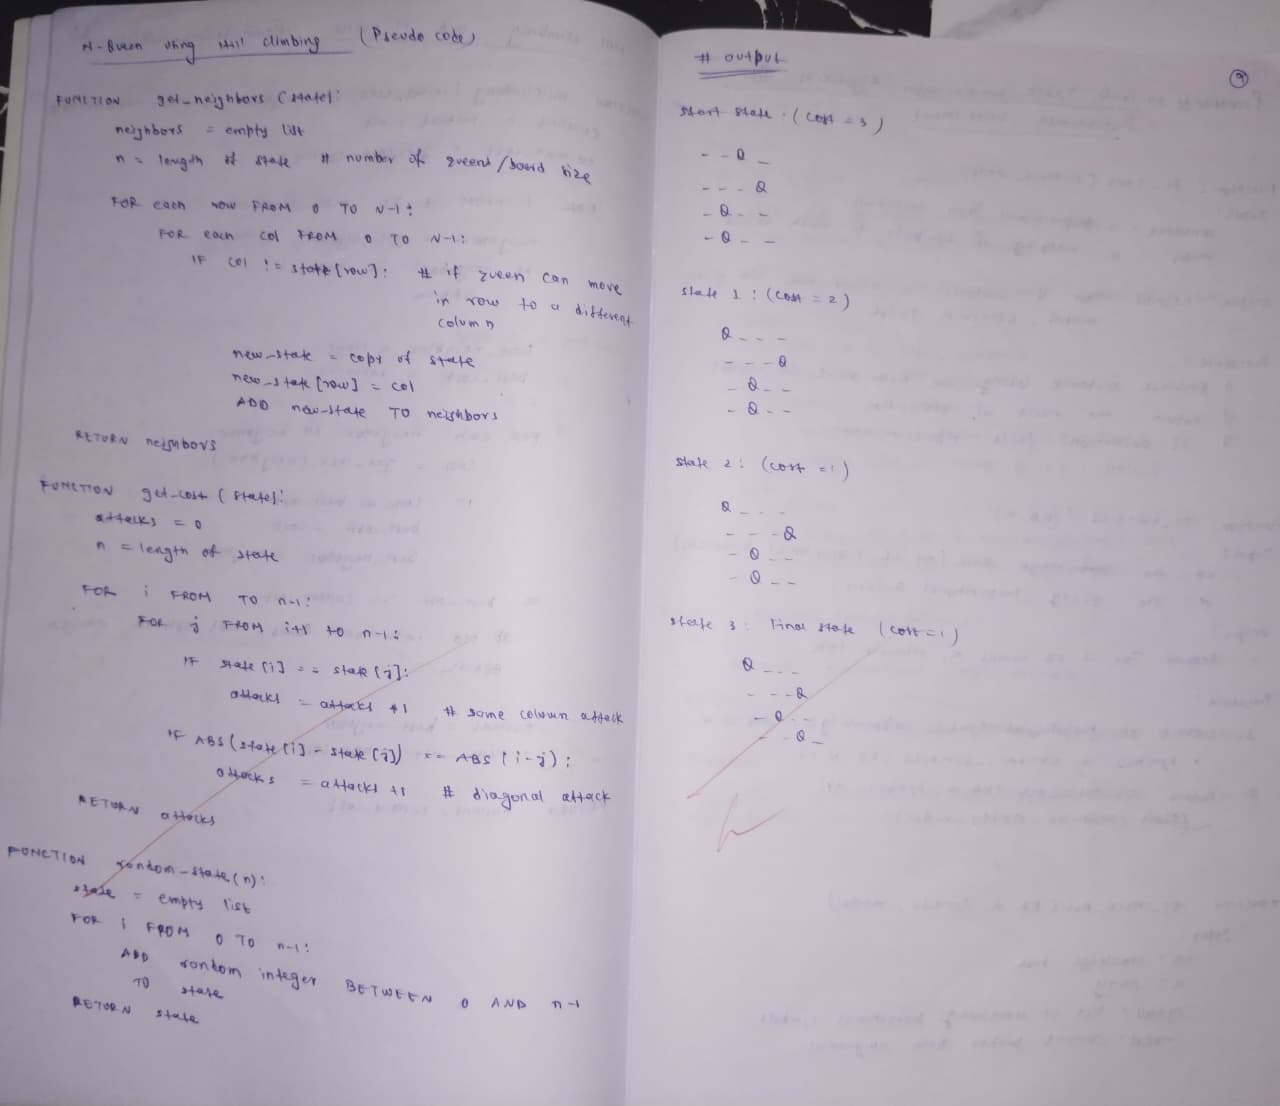 N-Queen using Hill climbing (Pseudo code)
FUNCTION get_neighbors (state):
neighbors = empty list
n = length of state # number of queens / board size
FOR each row FROM 0 TO N-1:
FOR each col FROM 0 TO N-1:
IF col != state [row]: # if queen can move
in row to a different
column
new_state = copy of state
new_state [row] = col
ADD new-state TO neighbors
RETURN neighbors
FUNCTION get-cost (state):
attacks = 0
n = length of state
FOR i FROM TO n-1:
FOR j FROM i+1 to n-1:
IF state [i] == state [j]:
attacks = attacks +1 # same column attack
IF ABS (state [i] - state [j]) == ABS (i-j):
attacks = attacks +1 # diagonal attack
RETURN attacks
FUNCTION random-state (n):
state = empty list
FOR i FROM 0 TO n-1:
ADD random integer BETWEEN 0 AND n-1
TO state
RETURN state
# output
9
start state : (cost = 3)
- - Q -
- - - Q
- Q - -
- Q - -
state 1 : (cost = 2)
Q - - -
- - - Q
- Q - -
- Q - -
state 2 : (cost = 1)
Q - - -
- - - Q
- Q - -
- Q - -
state 3 : Final state (cost = 1)
Q - - -
- - - Q
- Q - -
- - Q -